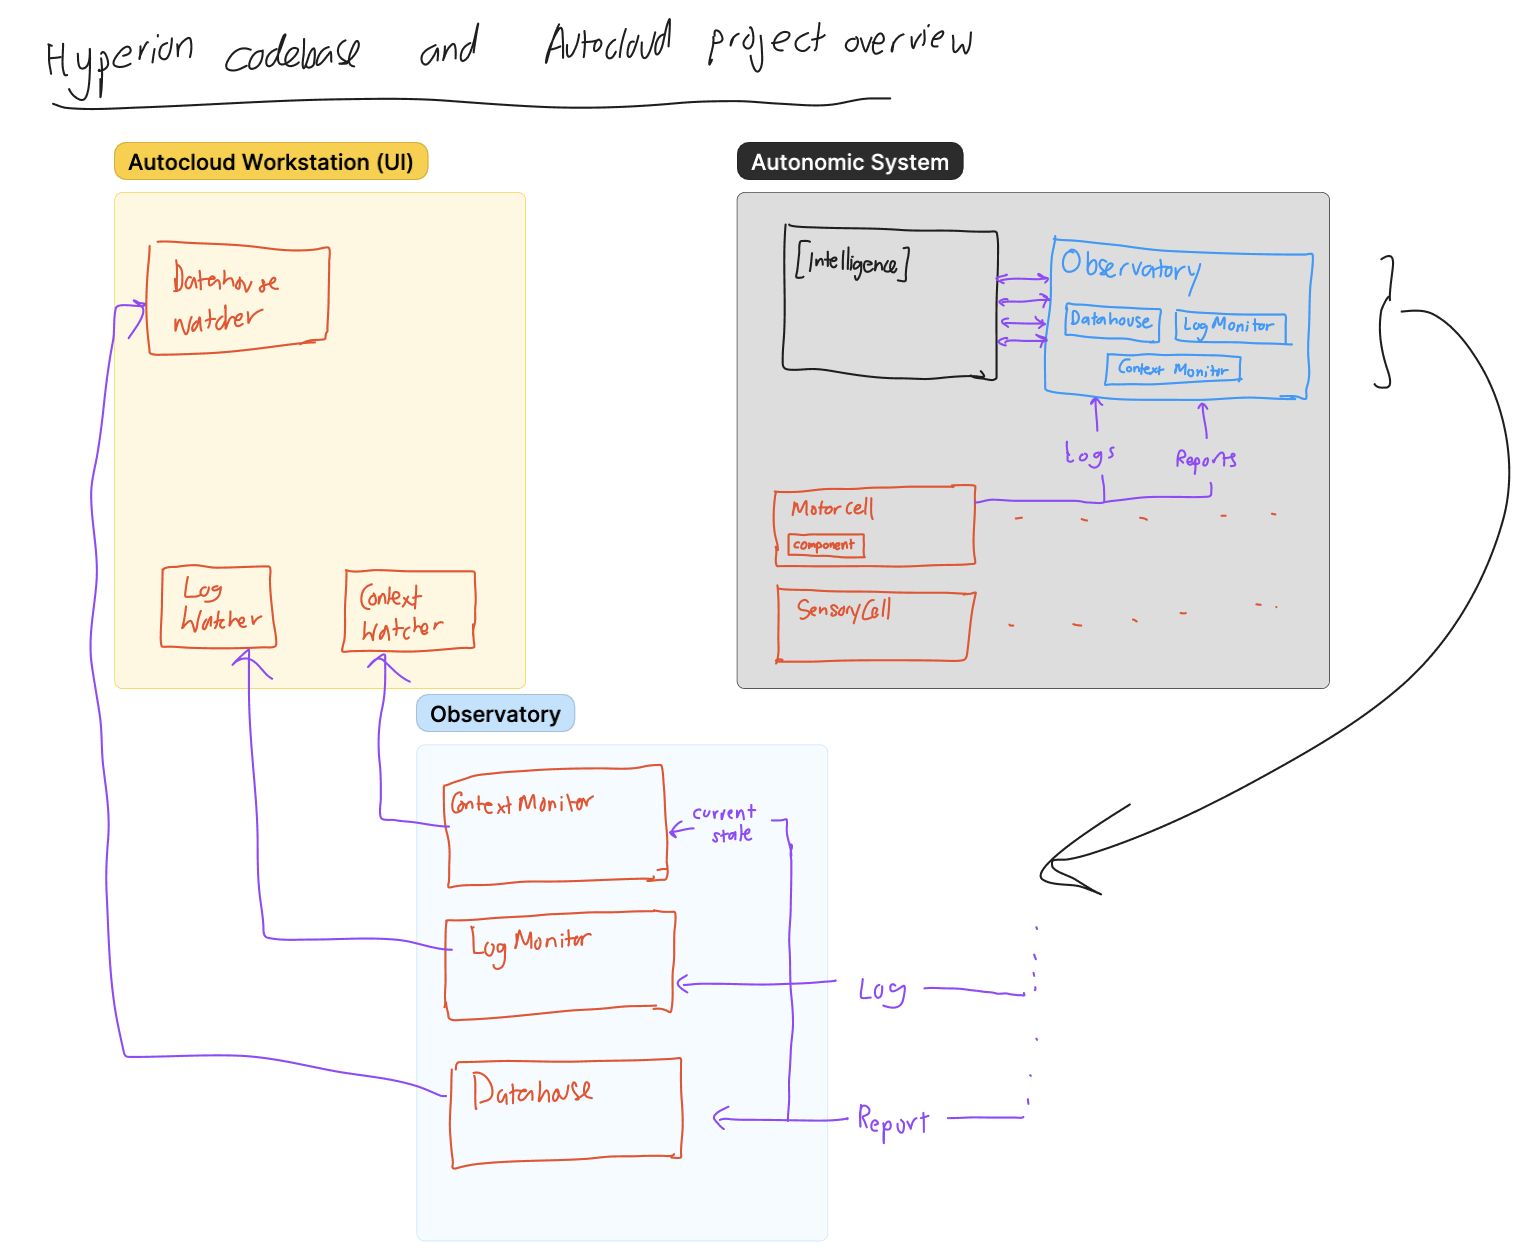 Hyperion codebase and Autocloud project overview
Autocloud Workstation (UI)
Datahouse
Watcher
Log
Watcher
Context
Watcher
Autonomic System
[Intelligence]
Observatory
Datahouse
Log Monitor
Context Monitor
Logs
Reports
Motor Cell
component
Sensory Cell
Observatory
Context Monitor
current
state
Log Monitor
Log
Datahouse
Report